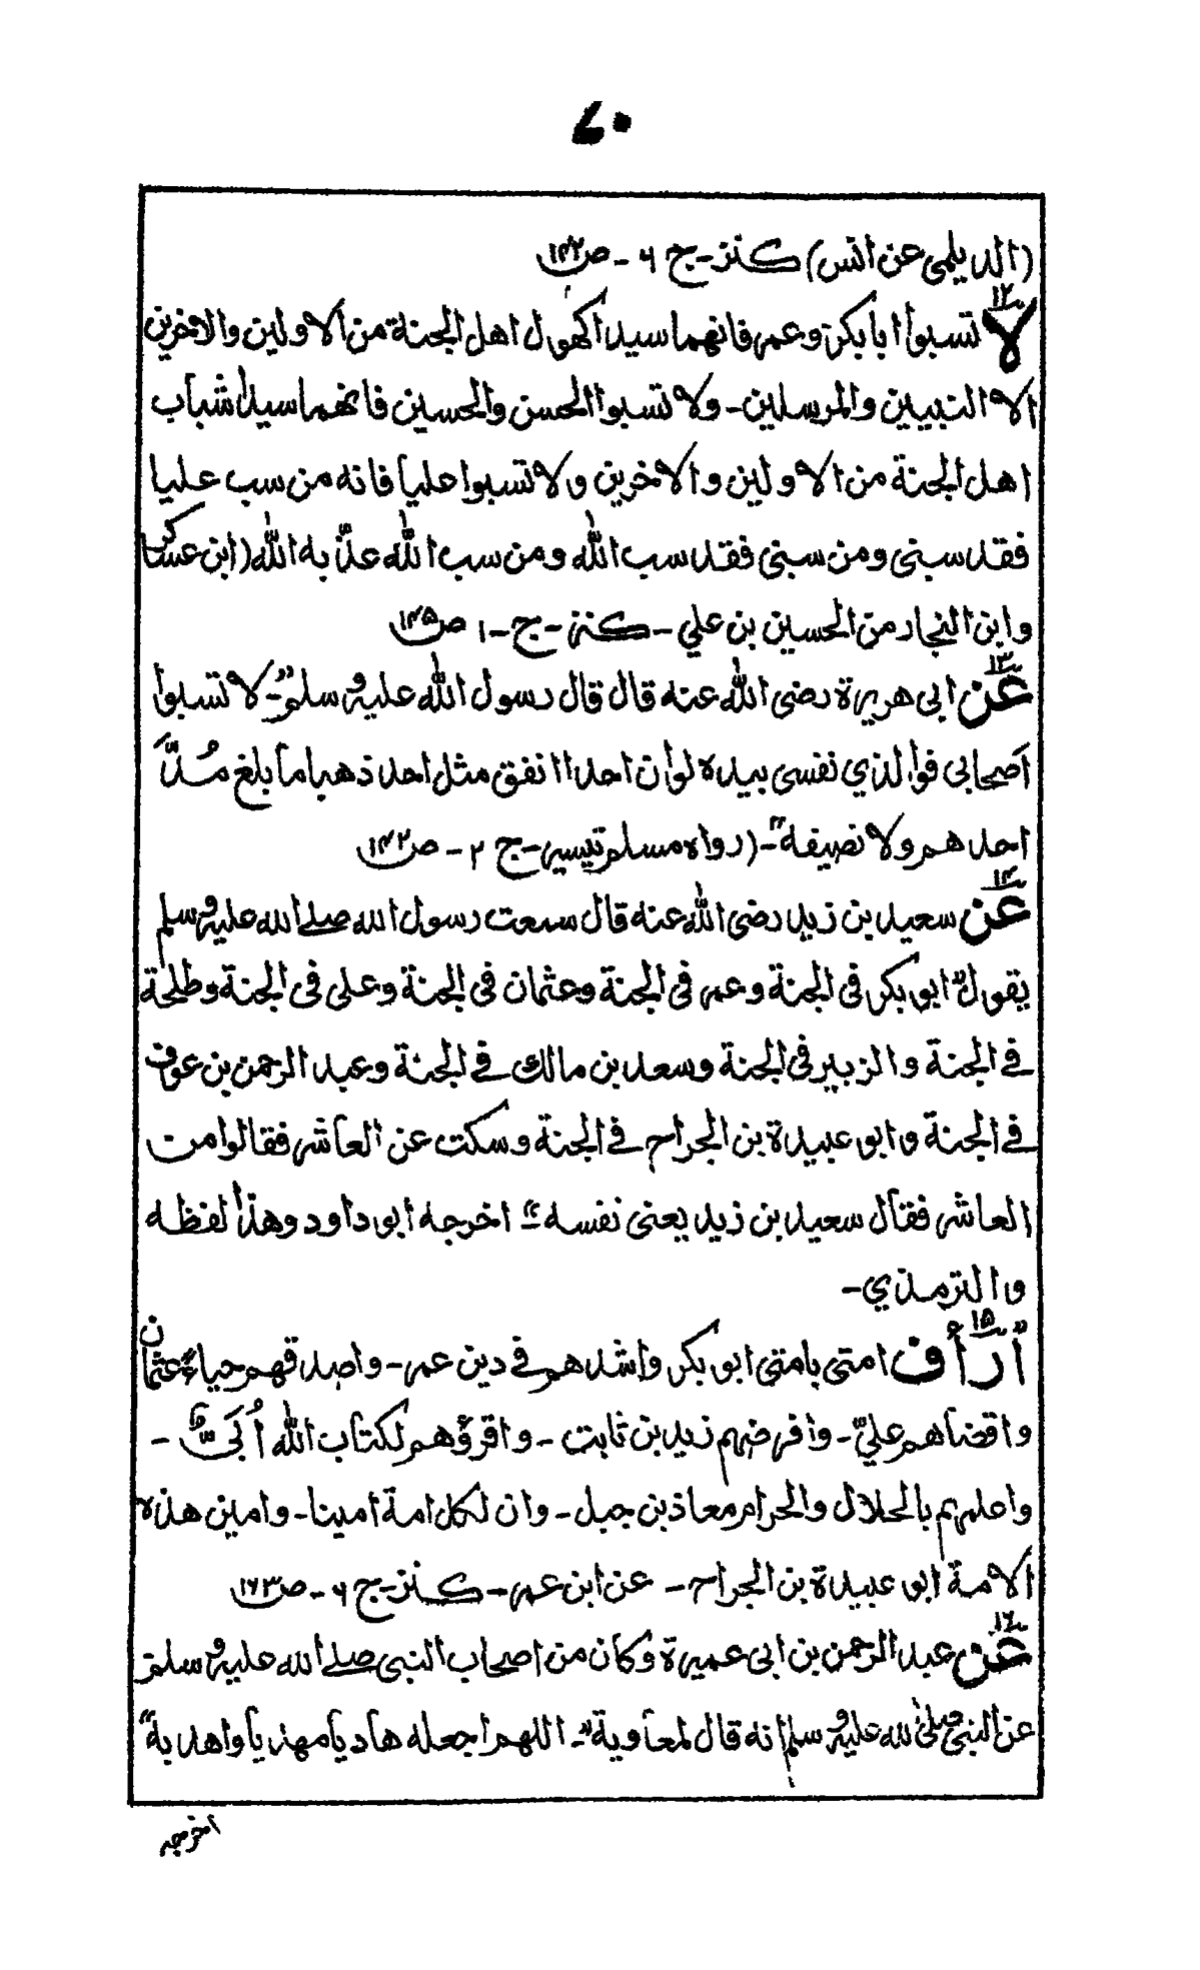 ٧٠
(الديلمي عن انس) كنز-ج ٦ - ص١٤٢
١٢
لا تسبوا ابا بكر وعمر فانهما سيدا كهول اهل الجنة من الاولين والاخرين
الا النبيين والمرسلين - ولا تسبوا الحسن والحسين فانهما سيدا شباب
اهل الجنة من الاولين والاخرين ولا تسبوا عليا فانه من سب عليا
فقد سبنى ومن سبنى فقد سب الله ومن سب الله عذبه الله (ابن عساكر
وابن النجار من الحسين بن علي - كنز - ج - ١ ص١٤٥
١٣
عن ابى هريرة رضى الله عنه قال قال رسول الله عليه وسلم "- لا تسبوا
اصحابى فوالذي نفسى بيده لوان احدا انفق مثل احد ذهبا ما بلغ مُدَّ
احدهم ولا نصيفه" - (رواه مسلم تيسير - ج ٢ - ص١٤٢
١٤
عن سعيد بن زيد رضى الله عنه قال سمعت رسول الله صلے الله عليه وسلم
يقول" ابو بكر فى الجنة وعمر فى الجنة وعثمان فى الجنة وعلى فى الجنة وطلحة
فے الجنة والزبير فى الجنة وسعد بن مالك فے الجنة وعبد الرحمن بن عوف
فے الجنة وابو عبيدة بن الجراح فے الجنة وسكت عن العاشر فقالوا من
العاشر فقال سعيد بن زيد يعنى نفسه" اخرجه ابو داود وهذا لفظه
والترمذي -
١٥
"أرأف امتى بامتى ابو بكر واشدهم فے دين عمر - واصدقهم حياء عثمان
واقضاهم عليّ - وافرضهم زيد بن ثابت - واقرؤهم لكتاب الله أُبَيّ -
واعلمهم بالحلال والحرام معاذ بن جبل - وان لكل امة امينا - وامين هذه
الامة ابو عبيدة بن الجراح - عن ابن عمر - كنز - ج ٦ - ص١٦٣
١٦
عن عبد الرحمن بن ابى عميرة وكان من اصحاب النبى صلے الله عليه وسلم
عن النبى صلى الله عليه وسلم انه قال لمعاوية "- اللهم اجعله هاديا مهديا واهد به"
اخرجه